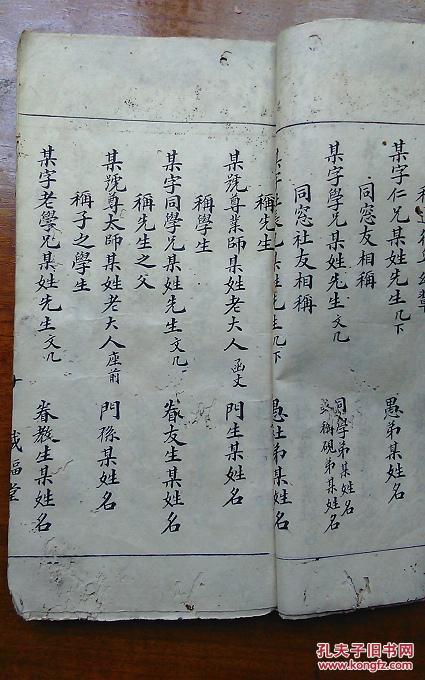 某字仁兄某姓先生几下　愚弟某姓名
同窓友相稱
某字學兄某姓先生文几　同學弟某姓名
硯弟某姓名
同窓社友相稱
某姓先生几下　愚社弟某姓名
稱先生
某號尊業師某姓老大人函丈　門生某姓名
稱學生
某字同學兄某姓先生文几　眷友生某姓名
稱先生之父
某號尊太師某姓老大人座前　門孫某姓名
稱子之學生
某字老學兄某姓先生文几　眷教生某姓名
福堂
孔夫子旧书网
www.kongfz.com